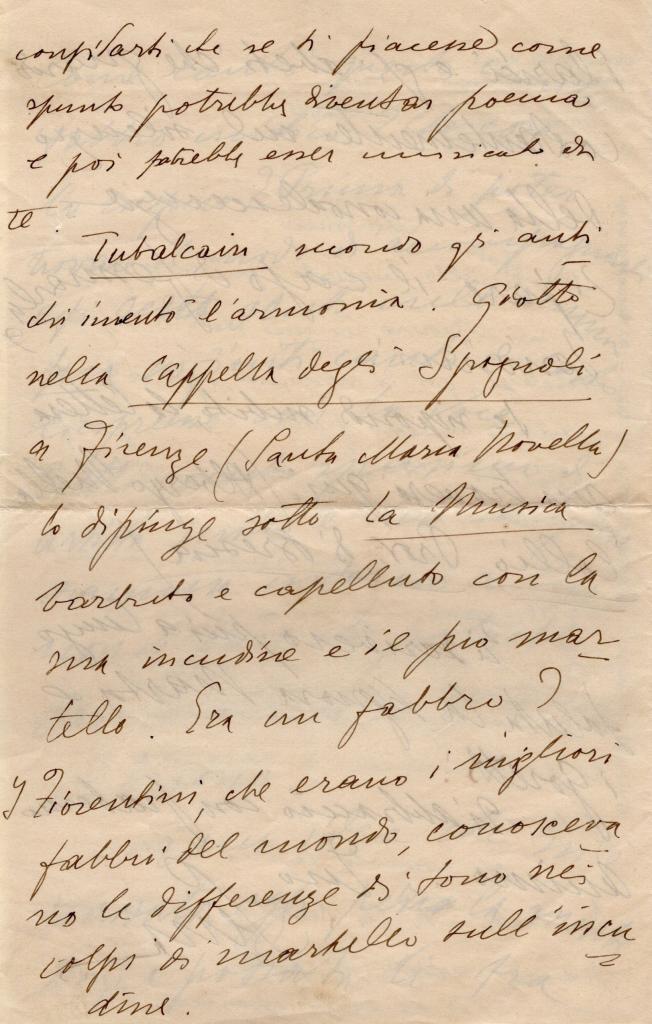 confidarti che se ti piacesse come
spunto potrebbe diventar poema
e poi potrebbe esser musicato da
te.
Tubalcain secondo gli anti
chi inventò l'armonia. Giotto
nella Cappella degli Spagnoli
a Firenze (Santa Maria Novella)
lo dipinge sotto la Musica
barbuto e capelluto con la
sua incudine e il suo mar
tello. Era un fabbro?
I Fiorentini, che erano i migliori
fabbri del mondo, conosceva
no le differenze di suono nei
colpi di martello sull'incu
dine.